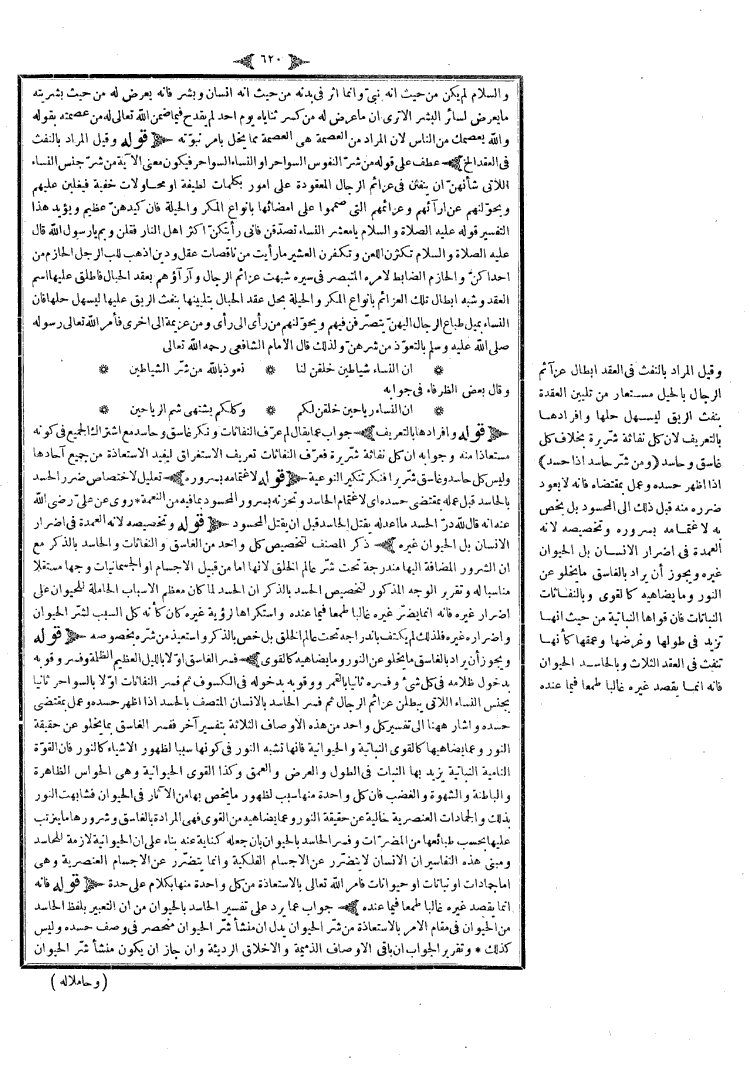 ٦٢٠
والسلام لم يكن من حيث انه نبىّ وانما اثر فى بدنه من حيث انه انسان وبشر فانه يعرض له من حيث بشريته
مايعرض لسائر البشر الاترى ان ماعرض له من كسر ثناياه يوم احد لم يقدح فيما ضمن الله تعالى له من عصمته بقوله
والله يعصمك من الناس لان المراد من العصمة هى العصمة مما يخل بامر نبوّته ﴿قوله وقيل المراد بالنفث
فى العقد الخ﴾ عطف على قوله من شرّ النفوس السواحر او النساء السواحر فيكون معنى الآية من شرّ جنس النساء
اللاتى شأنهنّ ان ينفثن فى عزائم الرجال المعقودة على امور بكلمات لطيفة او محاولات خفية فيغلبن عليهم
ويحوّلنهم عن ارآئهم وعزائمهم التى صمموا على امضائها بانواع المكر والحيلة فان كيدهنّ عظيم ويؤيد هذا
التفسير قوله عليه الصلاة والسلام يامعشر النساء تصدّقن فانى رأيتكنّ اكثر اهل النار فقلن وبم يارسول الله قال
عليه الصلاة والسلام تكثرن اللعن وتكفرن العشير مارأيت من ناقصات عقل ودين اذهب للب الرجل الحازم من
احداكنّ والحازم الضابط لامره المتبصر فى سيره شبهت عزائم الرجال وآرآؤهم بعقد الحبال فاطلق عليها اسم
العقد وشبه ابطال تلك العزائم بانواع المكر والحيلة بحل عقد الحبال بتليينها بنفث الريق عليها ليسهل حلها فان
النساء بميل طباع الرجال اليهنّ يتصرّفن فيهم ويحوّلنهم من رأى الى رأى ومن عزيمة الى اخرى فأمر الله تعالى رسوله
صلى الله عليه وسلم بالتعوّذ من شرهنّ ولذلك قال الامام الشافعى رحمه الله تعالى
* ان النساء شياطين خلقن لنا * نعوذ بالله من شرّ الشياطين *
وقال بعض الظرفاء فى جوابه
* ان النساء رياحين خلقن لكم * وكلكم يشتهى شم الرياحين *
﴿قوله وافرادها بالتعريف﴾ جواب عما يقال لم عرّف النفاثات ونكر غاسق وحاسد مع اشتراك الجميع فى كونه
مستعاذا منه وجوابه ان كل نفاثة شرّيرة فعرّف النفاثات تعريف الاستغراق ليفيد الاستعاذة من جميع آحادها
وليس كل حاسد وغاسق شرّيرا فنكر تنكير النوعية ﴿قوله لاغتمامه بسروره﴾ تعليل لاختصاص ضرر الحسد
بالحاسد قبل عمله بمقتضى حسده اى لاغتمام الحاسد وتحزنه بسرور المحسود بما فيه من النعمة * روى عن علىّ رضى الله
عنه انه قال لله درّ الحسد ما اعدله يقتل الحاسد قبل ان يقتل المحسود ﴿قوله وتخصيصه لانه العمدة فى اضرار
الانسان بل الحيوان غيره﴾ ذكر المصنف لتخصيص كل واحد من الغاسق والنفاثات والحاسد بالذكر مع
ان الشرور المضافة اليها مندرجة تحت شرّ عالم الخلق لانها اما من قبيل الاجسام او الجسمانيات وجها مستقلا
مناسبا له وتقرير الوجه المذكور لتخصيص الحسد بالذكر ان الحسد لما كان معظم الاسباب الحاملة للحيوان على
اضرار غيره فانه انما يضرّ غيره غالبا طمعا فيما عنده واستكراها لرؤية غيره كان كأنه كل السبب لشرّ الحيوان
واضراره غيره فلذلك لم يكتف باندراجه تحت عالم الخلق بل خص بالذكر واستعيذ من شرّه بخصوصه ﴿قوله
ويجوز أن يراد بالغاسق مايخلو عن النور ومايضاهيه كالقوى﴾ فسر الغاسق اوّلا بالليل العظيم الظلمة وفسر وقوبه
بدخول ظلامه فى كل شئ وفسره ثانيا بالقمر ووقوبه بدخوله فى الكسوف ثم فسر النفاثات اوّلا بالسواحر ثانيا
بجنس النساء اللاتى يبطلن عزائم الرجال ثم فسر الحاسد بالانسان المتصف بالحسد اذا اظهر حسده وعمل بمقتضى
حسده واشار ههنا الى تفسير كل واحد من هذه الاوصاف الثلاثة بتفسير آخر ففسر الغاسق بما يخلو عن حقيقة
النور وعما يضاهيها كالقوى النباتية والحيوانية فانها تشبه النور فى كونها سببا لظهور الاشياء كالنور فان القوّة
النامية النباتية يزيد بها النبات فى الطول والعرض والعمق وكذا القوى الحيوانية وهى الحواس الظاهرة
والباطنة والشهوة والغضب فان كل واحدة منها سبب لظهور مايخص بها من الآثار فى الحيوان فشابهت النور
بذلك والجمادات العنصرية خالية عن حقيقة النور وعما يضاهيه من القوى فهى المرادة بالغاسق وشرورها مايترتب
عليها بحسب طبائعها من المضرّات وفسر الحاسد بالحيوان بان جعله كناية عنه بناء على ان الحيوانية لازمة للحاسد
ومبنى هذه التفاسير ان الانسان لايتضرّر عن الاجسام الفلكية وانما يتضرّر عن الاجسام العنصرية وهى
اما جمادات او نباتات او حيوانات فامر الله تعالى بالاستعاذة من كل واحدة منها بكلام على حدة ﴿قوله فانه
انما يقصد غيره غالبا طمعا فيما عنده﴾ جواب عما يرد على تفسير الحاسد بالحيوان من ان التعبير بلفظ الحاسد
من الحيوان فى مقام الامر بالاستعاذة من شرّ الحيوان يدل ان منشأ شرّ الحيوان منحصر فى وصف حسده وليس
كذلك * وتقرير الجواب ان باقى الاوصاف الذميمة والاخلاق الرديئة وان جاز ان يكون منشأ شرّ الحيوان
(وحاملا له)
وقيل المراد بالنفث فى العقد ابطال عزآئم
الرجال بالحيل مستعار من تليين العقدة
بنفث الريق ليسهل حلها وافرادها
بالتعريف لان كل نفاثة شرّيرة بخلاف كل
غاسق وحاسد (ومن شرّ حاسد اذا حسد)
اذا اظهر حسده وعمل بمقتضاه فانه لا يعود
ضرره منه قبل ذلك الى المحسود بل يخص
به لاغتمامه بسروره وتخصيصه لانه
العمدة فى اضرار الانسان بل الحيوان
غيره ويجوز أن يراد بالغاسق مايخلو عن
النور ومايضاهيه كالقوى وبالنفاثات
النباتات فان قواها النباتية من حيث انها
تزيد فى طولها وعرضها وعمقها كأنها
تنفث فى العقد الثلاث وبالحاسد الحيوان
فانه انما يقصد غيره غالبا طمعا فيما عنده